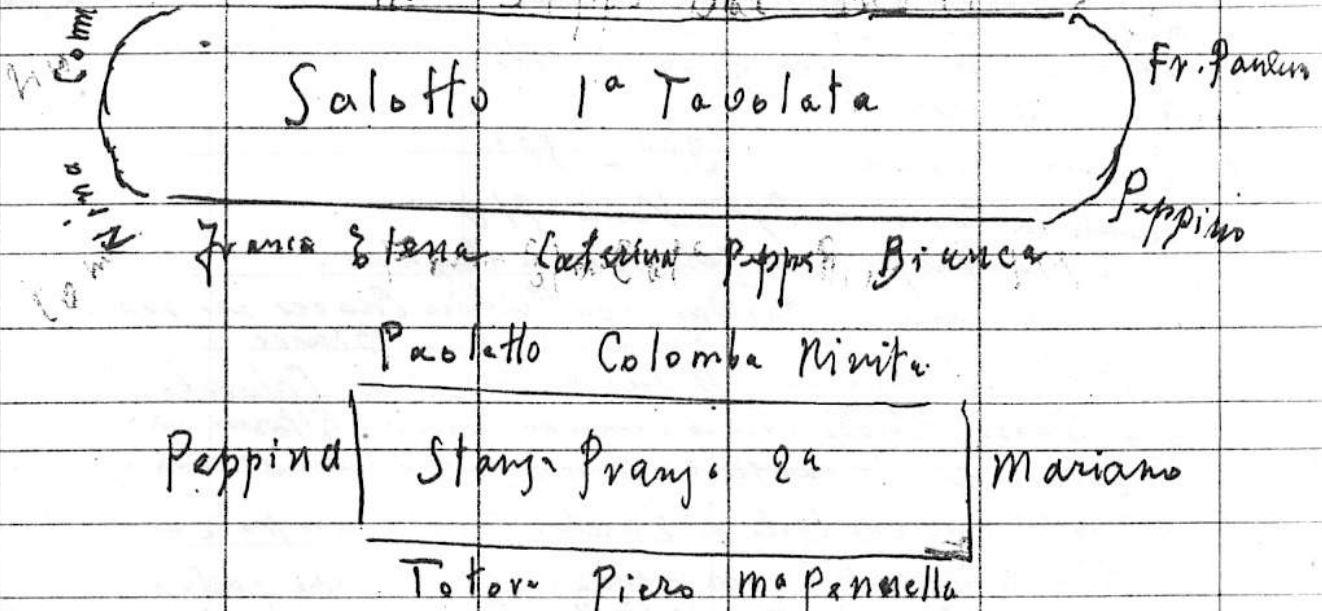 Com
Salotto 1ª Tavolata
Fr.
Peppino
Franca Elena Caterina Peppe Bianca
Paoletto Colomba Ninita
Peppina
Stanza Pranzo 2ª
Mariano
Totora Piero Mª Pannella